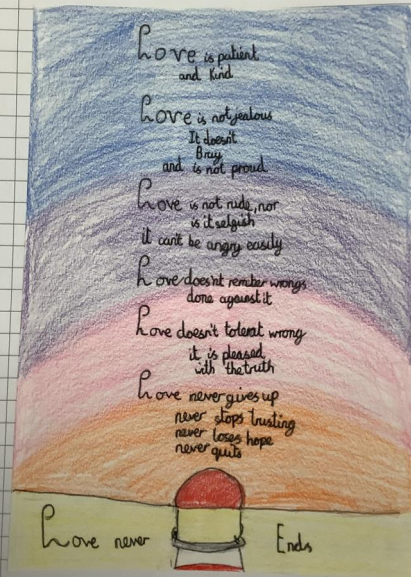 Love is patient
and kind
Love is not jealous
It doesn't
Brag
and is not proud
Love is not rude, nor
is it selfish
it can't be angry easily
Love does'nt remember wrongs
done against it
Love doesn't tolerat wrong
it is pleased
with the truth
Love never gives up
never stops trusting
never loses hope
never quits
Love never Ends